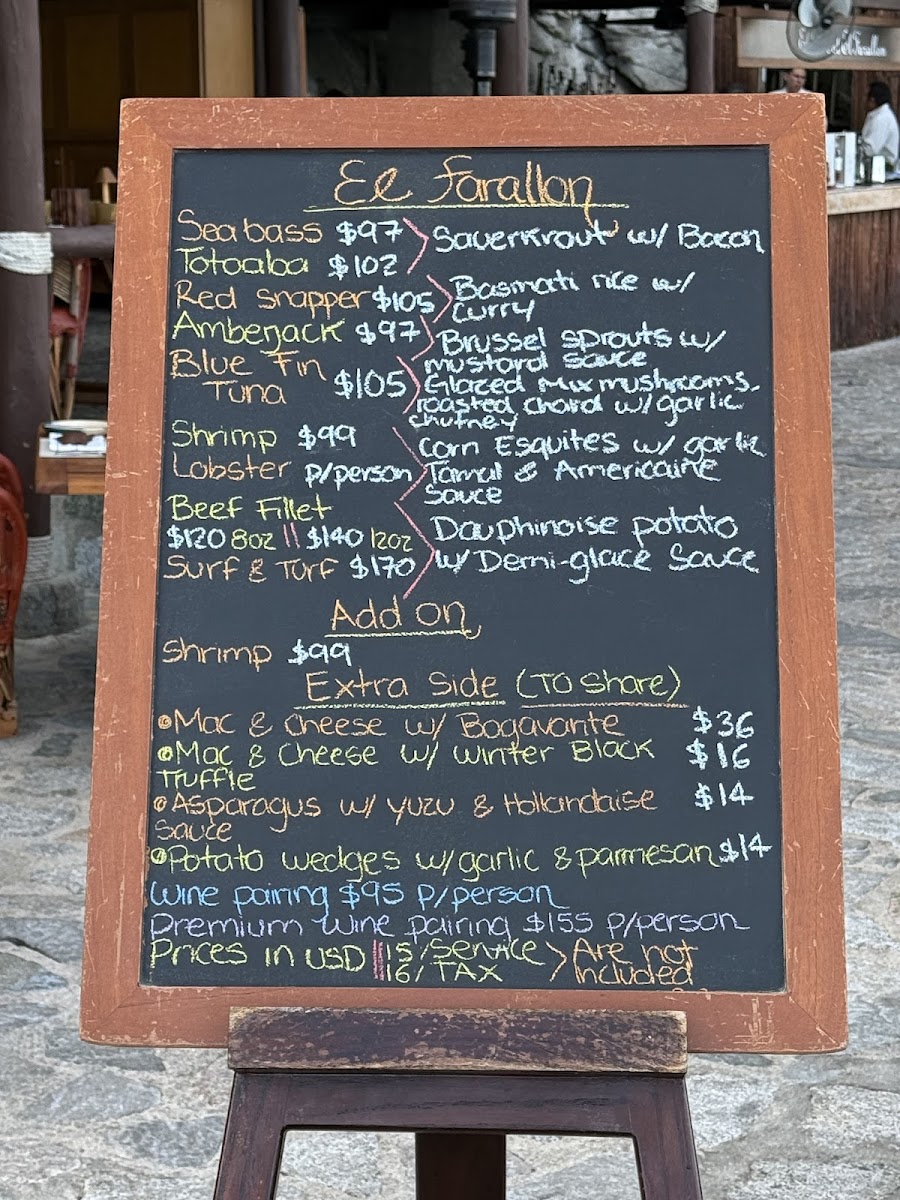 El Farallon
El Farallon
Seabass $97
Totoaba $102
Sauerkraut w/ Bacon
Red snapper $105
Basmati rice w/
curry
Amberjack $97
Brussel sprouts w/
mustard sauce
Blue Fin
Tuna $105
Glazed mix mushrooms,
roasted chard w/ garlic
chutney
Shrimp $99
Lobster p/person
Corn Esquites w/ garlic
Tamal & Americaine
Sauce
Beef Fillet
$120 8oz || $140 12oz
Surf & Turf $170
Dauphinoise potato
w/ Demi-glace Sauce
Add on
Shrimp $99
Extra Side (To Share)
•Mac & Cheese w/ Bogavante $36
•Mac & Cheese w/ Winter Black $16
Truffle
•Asparagus w/ yuzu & Hollandaise $14
Sauce
•Potato wedges w/ garlic & parmesan $14
Wine pairing $95 p/person
Premium Wine pairing $155 p/person
Prices in USD || 15/ Service > Are not
16/ TAX Included